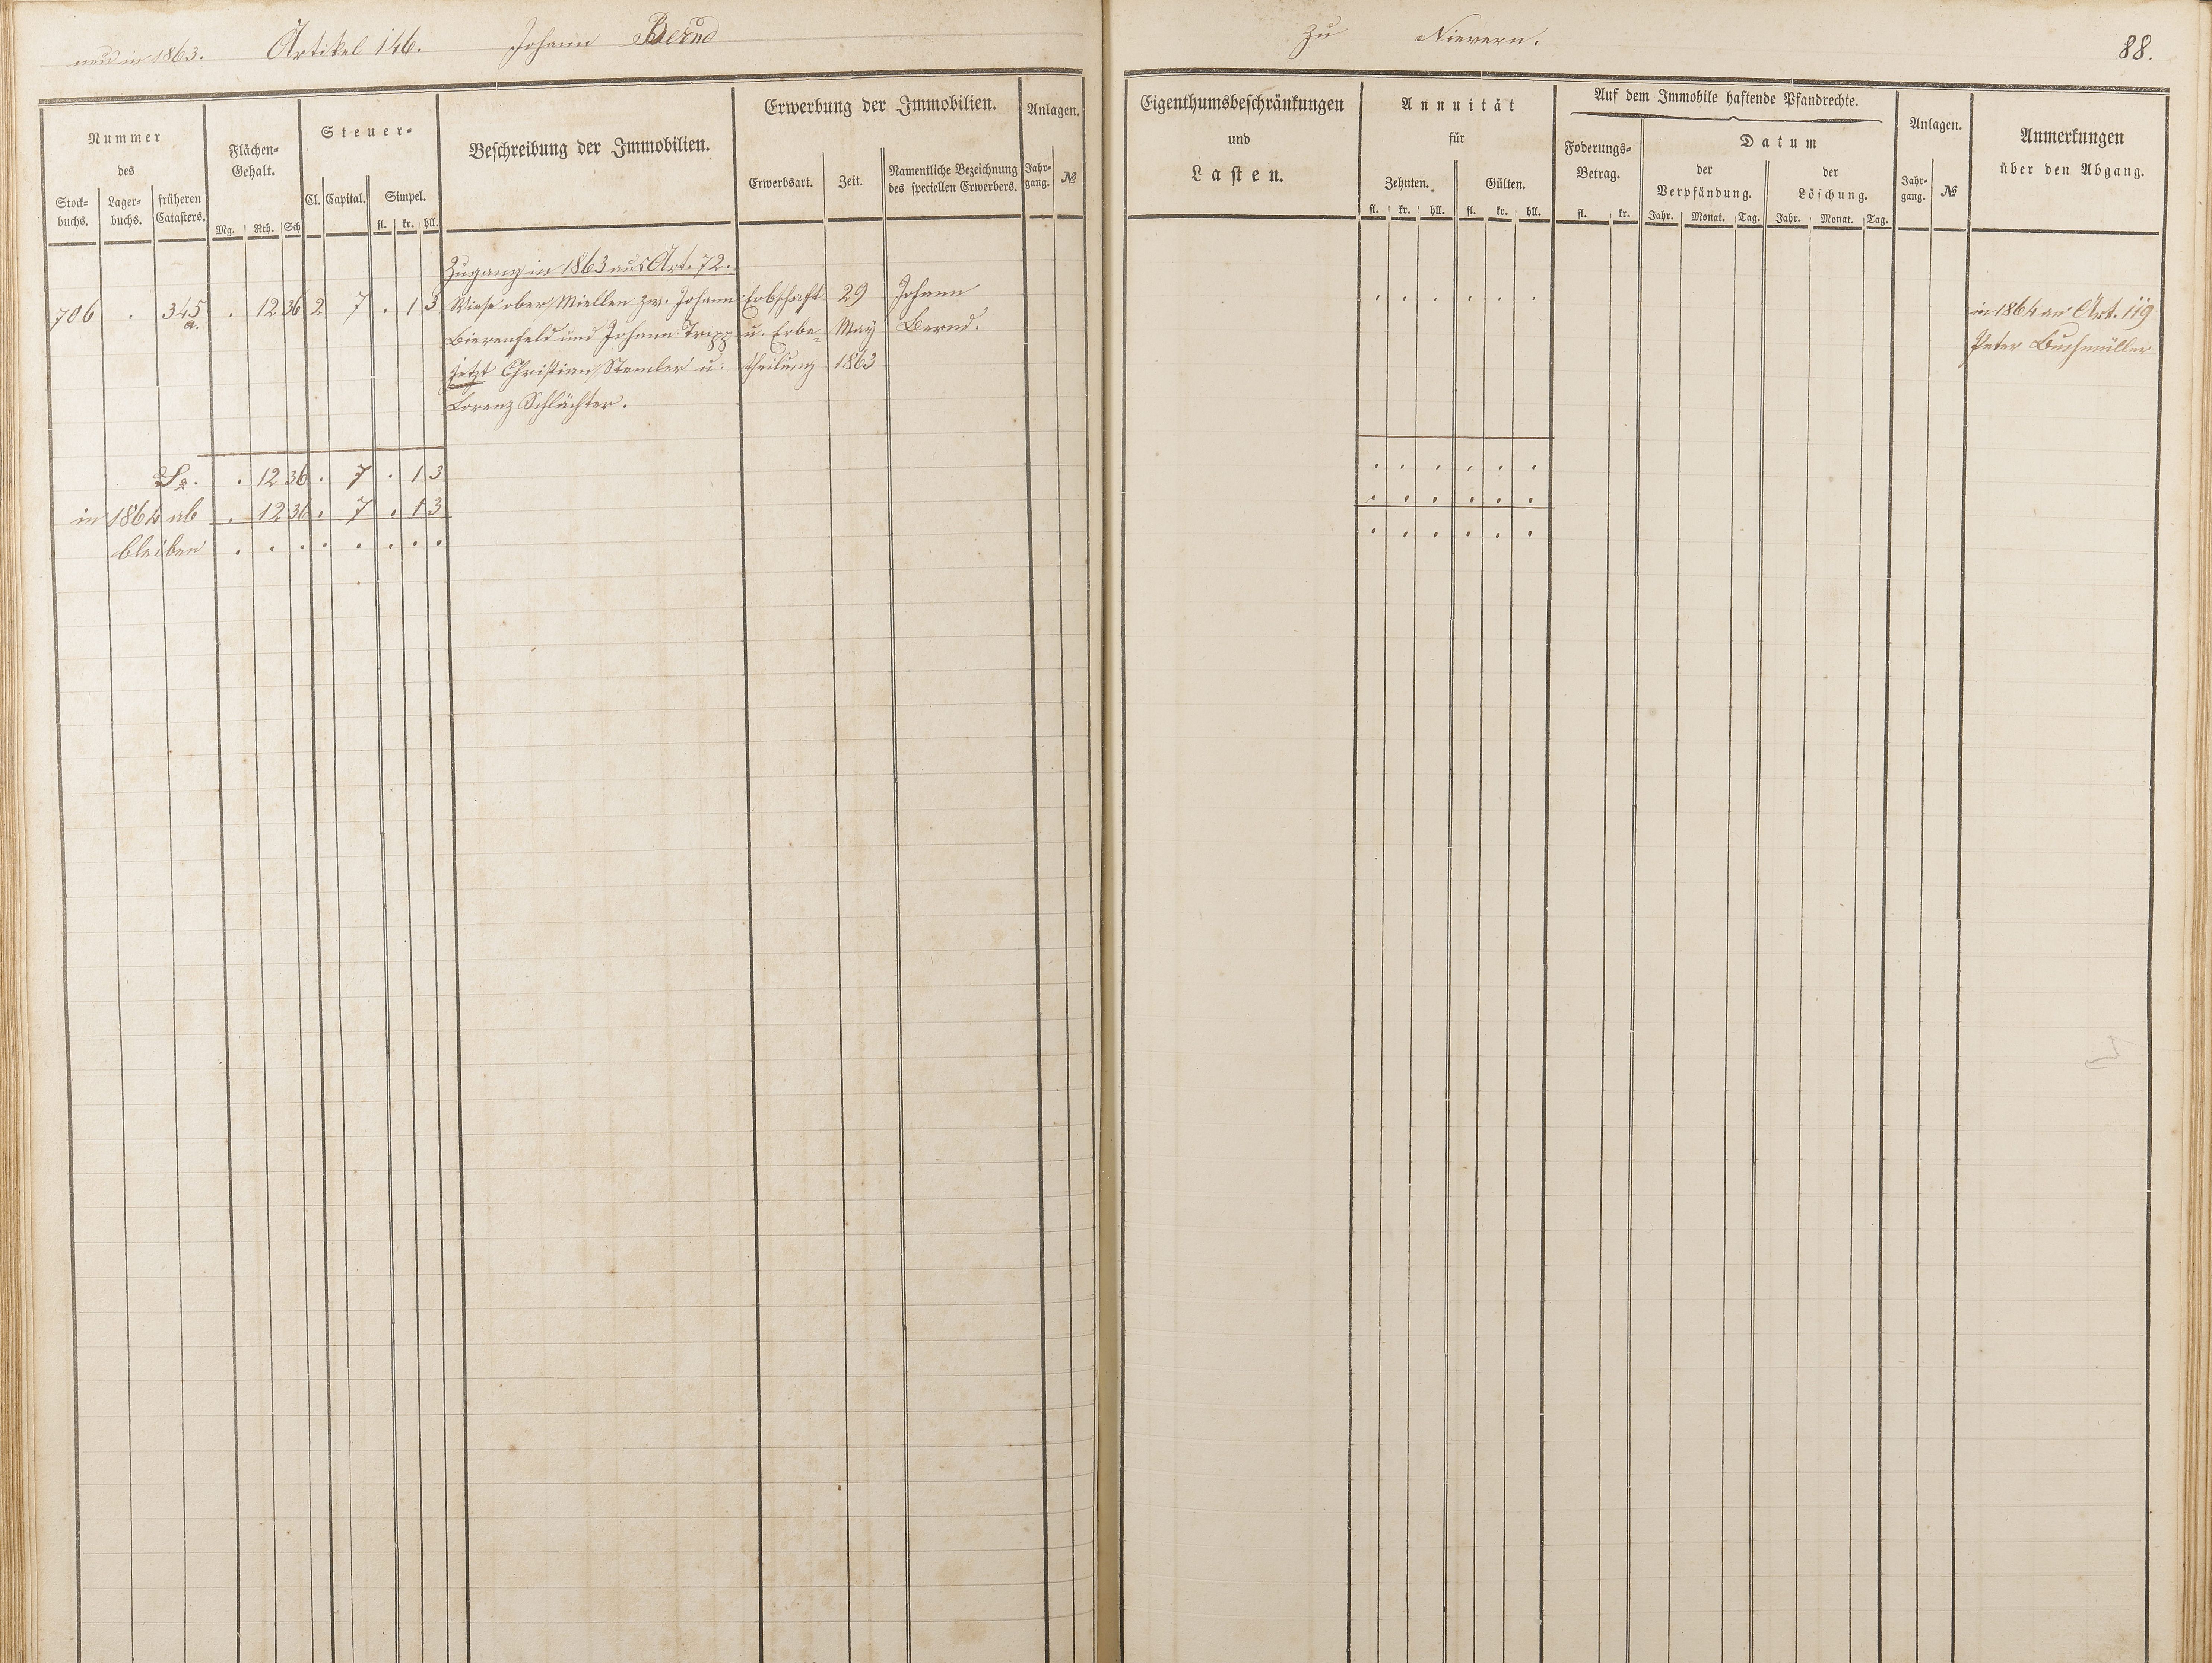 neu in 1863. Artikel 146. Johann Bernd zu Nievern. 88.
Nummer
des
Stock-
buchs.
Lager-
buchs.
früheren
Catasters.
Flächen-
Gehalt.
Mg. Rth. Sch
Steuer-
Cl. Capital.
Simpel.
fl. kr. hll.
Beschreibung der Immobilien.
Erwerbung der Immobilien.
Erwerbsart.
Zeit.
Namentliche Bezeichnung
des speciellen Erwerbers.
Anlagen.
Jahr-
gang.
№
Eigenthumsbeschränkungen
und
Lasten.
Annuität
für
Zehnten.
fl. kr. hll.
Gülten.
fl. kr. hll.
Auf dem Immobile haftende Pfandrechte.
Foderungs-
Betrag.
fl. kr.
Datum
der
Verpfändung.
Jahr. Monat. Tag.
der
Löschung.
Jahr. Monat. Tag.
Anlagen.
Jahr-
gang.
№
Anmerkungen
über den Abgang.
Zugang in 1863 aus Art. 72.
706 . 345 . 12 36 2 7 . 1 3
a.
Wiese ober Miellen zw. Johann
Bierenfeld und Johann Tripp
jetzt Christian Stemler u.
Lorenz Schlächter.
Erbschaft
u. Erbe-
theilung
29
May
1863
Johann
Bernd.
. . . . . .
in 1864 an Art. 119
Peter Buchmüller
Sa. . 12 36 . 7 . 1 3 . . . . . .
in 1864 ab . 12 36 . 7 . 1 3 . . . . . .
bleiben . . . . . . . . . . . . . .